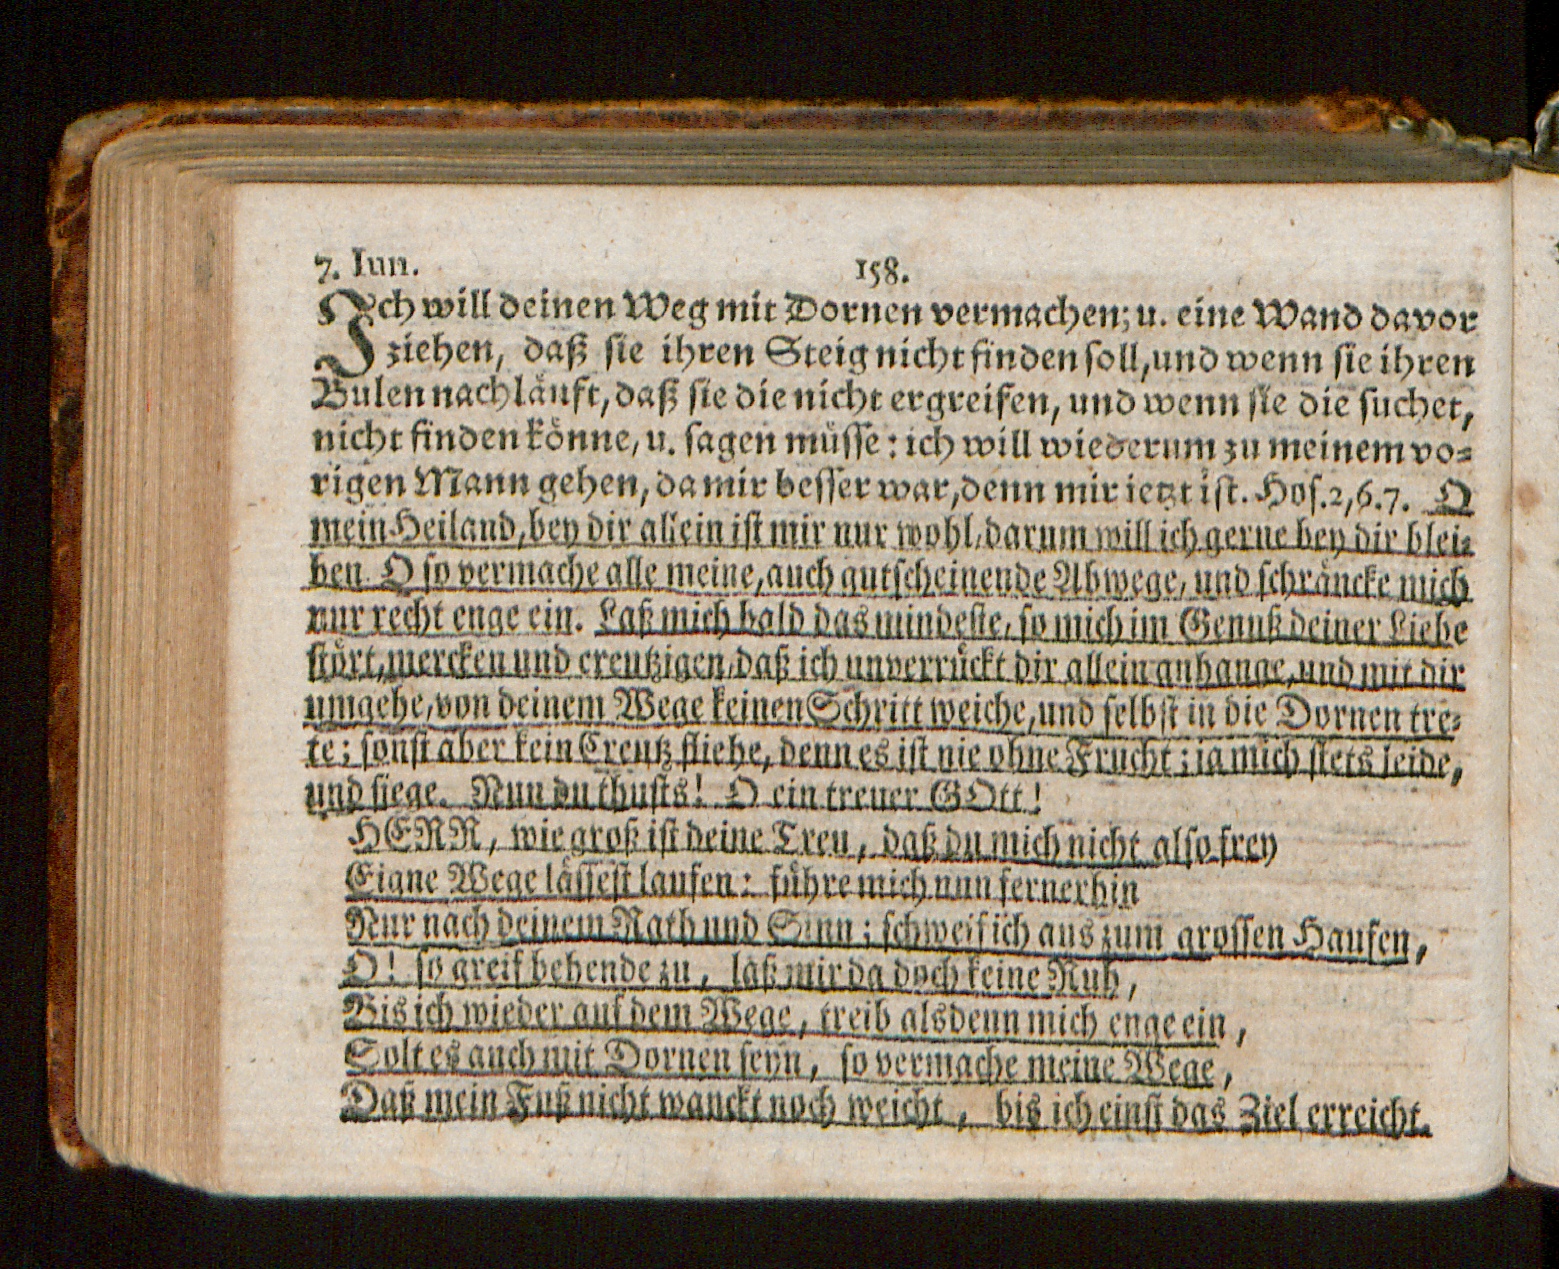 7. Iun.
158.
Ich will deinen Weg mit Dornen vermachen; u. eine Wand davor
ziehen, daß sie ihren Steig nicht finden soll, und wenn sie ihren
Bulen nachläuft, daß sie die nicht ergreifen, und wenn sie die suchet,
nicht finden könne, u. sagen müsse: ich will wiederum zu meinem vo-
rigen Mann gehen, da mir besser war, denn mir ietzt ist. Hos. 2, 6. 7. O
mein Heiland, bey dir allein ist mir nur wohl, darum will ich gerne bey dir blei-
ben. O so vermache alle meine, auch gutscheinende Abwege, und schräncke mich
nur recht enge ein. Laß mich bald das mindeste, so mich im Genuß deiner Liebe
stört, mercken und creutzigen, daß ich unverrückt dir allein anhange, und mit dir
umgehe, von deinem Wege keinen Schritt weiche, und selbst in die Dornen tre-
te; sonst aber kein Creutz fliehe, denn es ist nie ohne Frucht; ia mich stets leide,
und siege. Nun du thusts! O ein treuer GOtt!
HERR, wie groß ist deine Treu, daß du mich nicht also frey
Eigne Wege lässest laufen: führe mich nun fernerhin
Nur nach deinem Rath und Sinn; schweif ich aus zum grossen Haufen,
O! so greif behende zu, laß mir da doch keine Ruh,
Bis ich wieder auf dem Wege, treib alsdenn mich enge ein,
Solt es auch mit Dornen seyn, so vermache meine Wege,
Daß mein Fuß nicht wanckt noch weicht, bis ich einst das Ziel erreicht.